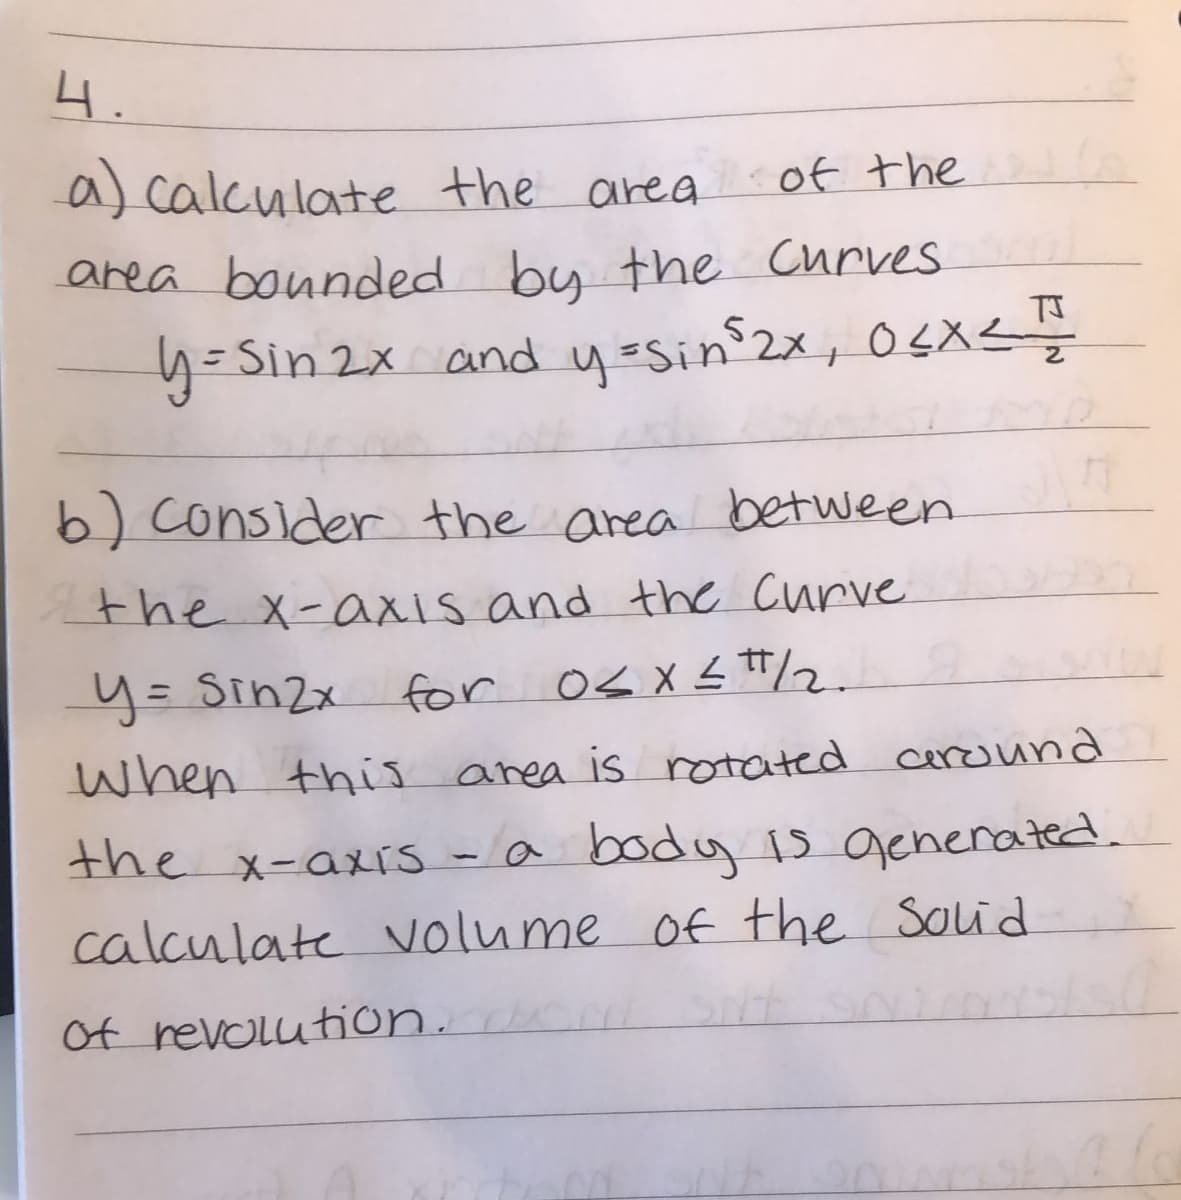 4.
a) calculate the area of the
area bounded by the curves
y = sin 2x and y = sin⁵2x, 0 ≤ x ≤ π/2
b) consider the area between
the x-axis and the curve
y = sin2x for 0 ≤ x ≤ π/2.
When this area is rotated around
the x-axis - a body is generated.
calculate volume of the solid
of revolution.